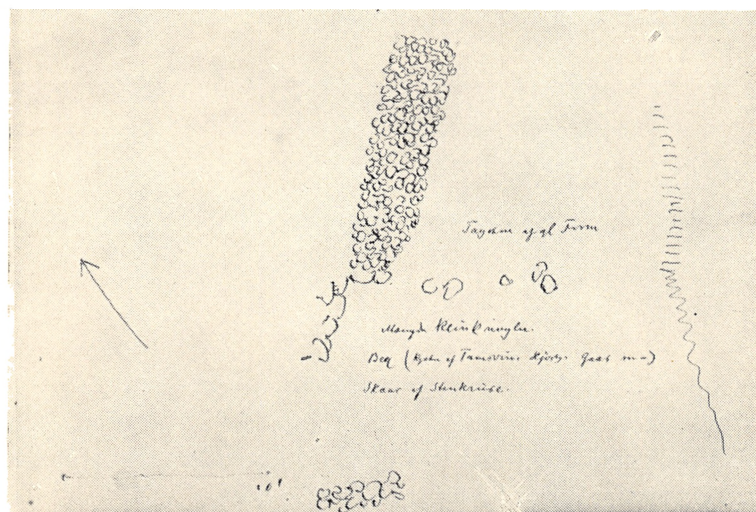 Tagsten af gl Form
Mængde Klinknagler.
Ben ( af Tamsviin, Hjort, Gaas m-)
Skaar af Stenkruse.
10'